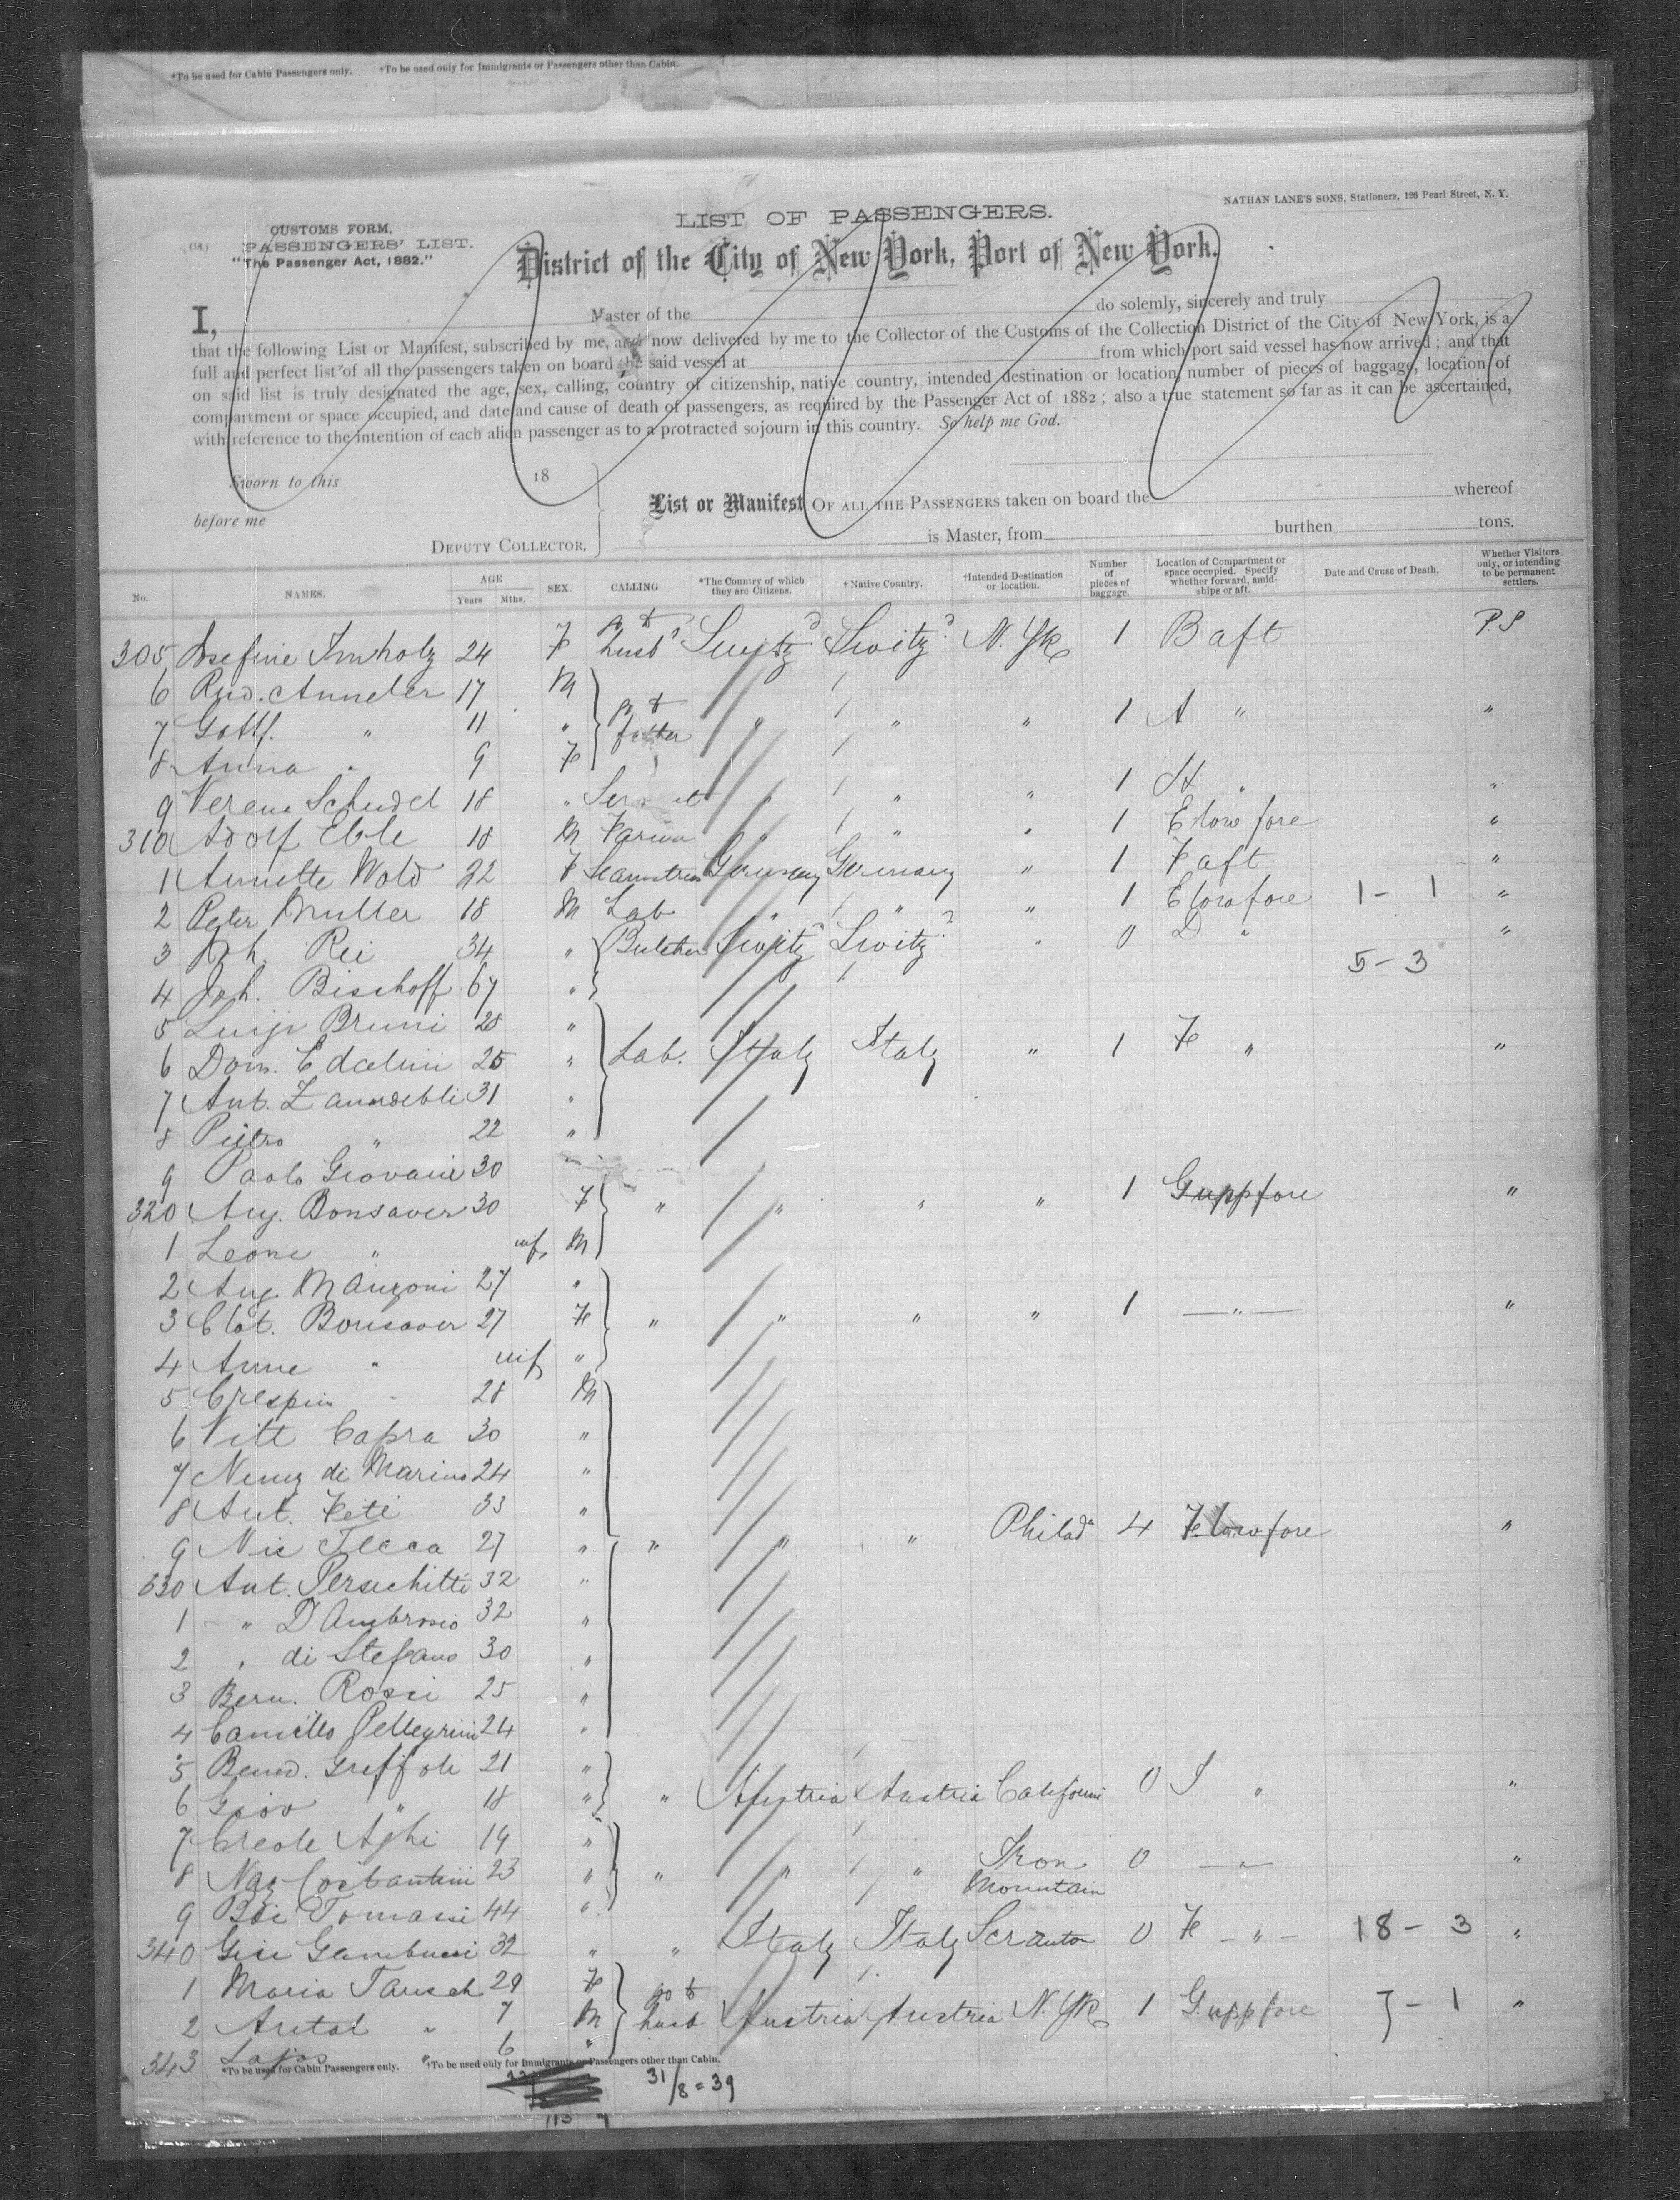 *To be used for Cabin Passengers only. †To be used only for Immigrants or Passengers other than Cabin.
NATHAN LANE'S SONS, Stationers, 126 Pearl Street, N. Y.
LIST OF PASSENGERS.
CUSTOMS FORM,
PASSENGERS' LIST.
"The Passenger Act, 1882."
District of the City of New York, Port of New York.
I, Master of the do solemly, sincerely and truly
that the following List or Manifest, subscribed by me, and now delivered by me to the Collector of the Customs of the Collection District of the City of New York, is a
full and perfect list of all the passengers taken on board the said vessel at from which port said vessel has now arrived; and that
on said list is truly designated the age, sex, calling, country of citizenship, native country, intended destination or location, number of pieces of baggage, location of
compartment or space occupied, and date and cause of death of passengers, as required by the Passenger Act of 1882; also a true statement so far as it can be ascertained,
with reference to the intention of each alien passenger as to a protracted sojourn in this country. So help me God.
Sworn to this 18
before me
DEPUTY COLLECTOR.
List or Manifest OF ALL THE PASSENGERS taken on board the whereof
is Master, from burthen tons.
No. NAMES. AGE Years Mths. SEX. CALLING *The Country of which they are Citizens. †Native Country. †Intended Destination or location. Number of pieces of baggage. Location of Compartment or space occupied. Specify whether forward, amidships or aft. Date and Cause of Death. Whether Visitors only, or intending to be permanent settlers.
305 Josefine Imholz 24 F husb Switz Switz N. Yk 1 B aft P.S
6 Rud. Anneler 17 M
7 Gottf. " 11 " father " " " 1 A " "
8 Anna " 9 F
9 Verena Schudel 18 " " " " 1 H " "
310 Adolf Eble 18 M " " " 1 E low fore "
1 Annette Wold 22 F Seamstress Germany Germany " 1 F aft "
2 Peter Muller 18 M Lab " " " 1 E low fore 1 - 1 "
3 Joh. Rei 34 " Butcher Switz Switz " 0 D " "
4 Joh. Bischoff 67 " 5 - 3
5 Luigi Bruni 28 "
6 Dom. 25 " Lab. Italy Italy " 1 F " "
7 Ant. 31 "
8 Pietro " 22 "
9 Paolo Giovanni 30
320 Ang. Bonsaver 30 F " " " " 1 G upp fore "
1 Leone " inf. M
2 Ang. Manzoni 27 "
3 Clot. Bonsaver 27 F " " " " 1 — " — "
4 Anna " inf "
5 Crespin " 28 M
6 Vitt Capra 30 "
7 di Marino 24 "
8 Ant. Feti 33 "
9 Nic 27 " " " " Philada 4 F low fore "
330 Ant. Persichitti 32 "
1 " D'Ambrosio 32 "
2 " di Stefano 30 "
3 Bern. Rossi 25 "
4 Camillo Pellegrini 24 "
5 Bened. Griffoli 21 "
6 Giov " 18 " " Austria Austria 0 J " "
7 Aghi 19 "
8 Costantini 23 " " " " Iron Mountain 0 — " — "
9 Tomassi 44 "
340 32 " " Italy Italy Scranton 0 F - " - 18 - 3 "
1 Maria Tausch 29 F
2 Antal " 7 M husb Austria Austria N. Yk 1 G. upp fore 7 - 1 "
343 Lajos " 6 "
*To be used for Cabin Passengers only. †To be used only for Immigrants or Passengers other than Cabin.
31/8 = 39